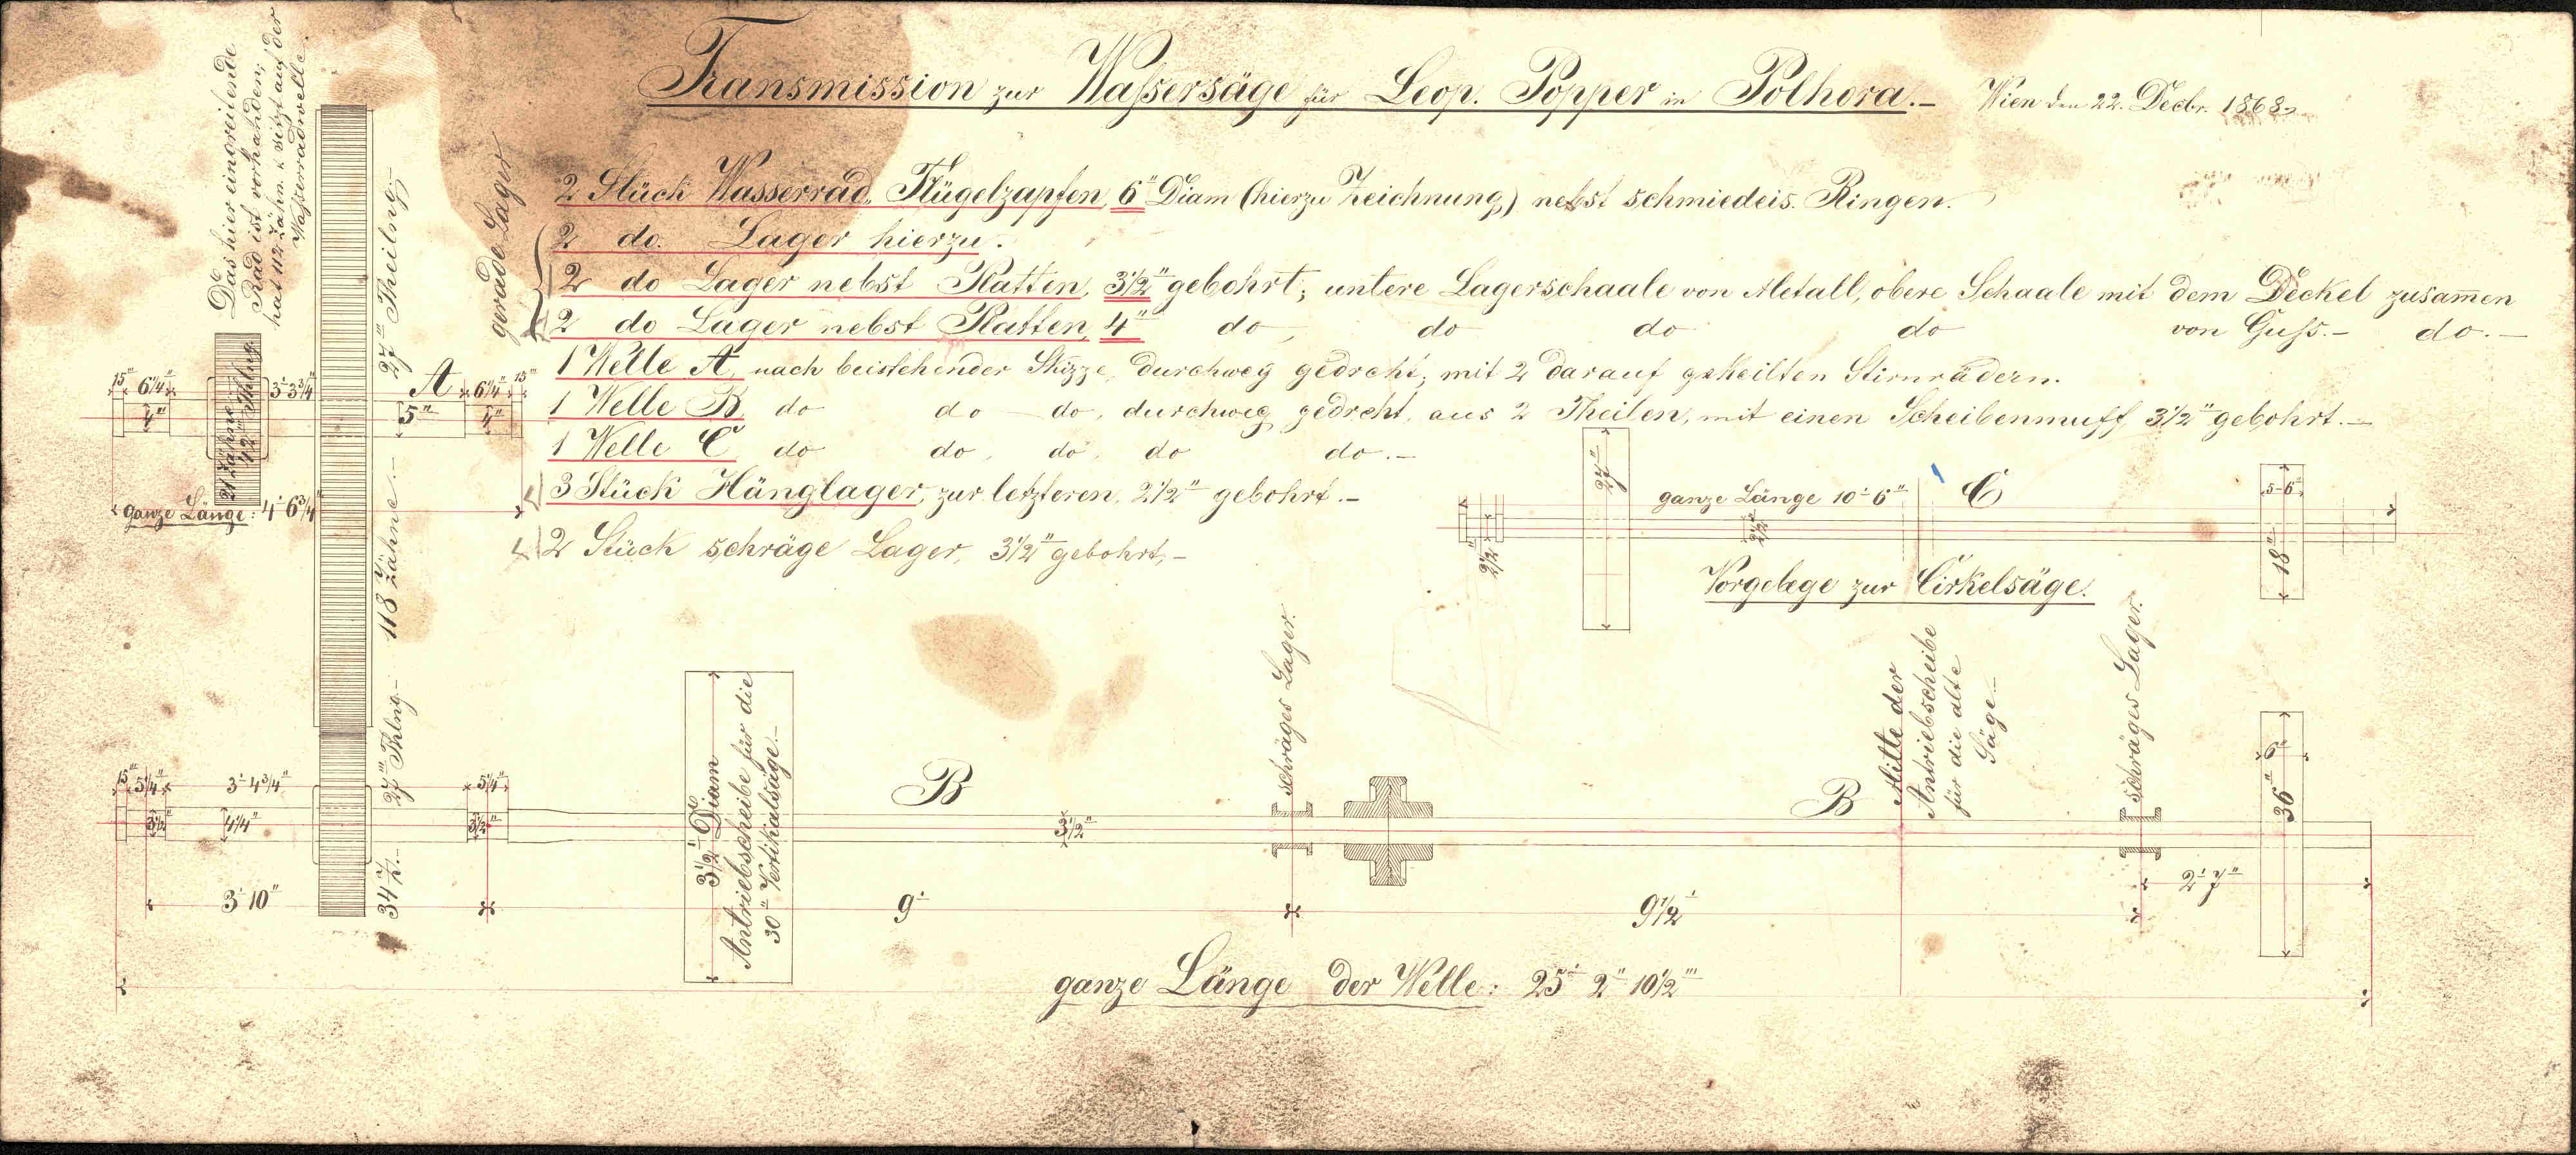 Transmission zur Waßersäge für Leop. Popper in Polhora.– Wien den 22. Decbr. 1868.
2 Stück Wasserrad, Flügelzapfen, 6" Diam (hierzu Zeichnung) nebst schmiedeis. Ringen.
2 do. Lager hierzu.
gerade Lager
2 do Lager nebst Platten, 3½" gebohrt; untere Lagerschaale von Metall, obere Schaale mit dem Deckel zusam̄en
2 do Lager nebst Platten, 4" do do do do von Guß.– do.–
1 Welle A, nach beistehender Skizze, durchweg gedreht, mit 2 darauf gekeilten Stirnrädern.
1 Welle B, do do do, durchweg gedreht, aus 2 Theilen, mit einen Scheibenmuff, 3½" gebohrt.–
1 Welle C do do, do, do do.–
3 Stück Hänglager, zur letzteren, 2½" gebohrt.–
2 Stück schräge Lager, 3½" gebohrt,–
Das hier eingreifende
Rad ist vorhanden,
hat 112 Zähn. & sitzt auf der
Waßerradwelle.
27''' Theilng–
118 Zähne.–
21 Zähne
15''' 6¼" 3' 3¾" A 6¼" 15'''
4" 5" 4"
ganze Länge: 4' 6¾"
27"
ganze Länge 10' 6" C
5-6"
2½" 2½" 18"
Vorgelege zur Cirkelsäge.
27''' Thlng–
34 Z.–
15''' 5¼" 3' 4¾" 5¼"
3½" 4¼" 3½"
3' 10"
3½' 6" Diam
Antriebscheibe für die
30" Vertikalsäge.–
B
3½"
schräges Lager.
B
Mitte der
Antriebscheibe
für die alte
Säge–
schräges Lager.
6"
36"
9' 9½' 2' 7"
ganze Länge der Welle: 25' 2" 10½'''